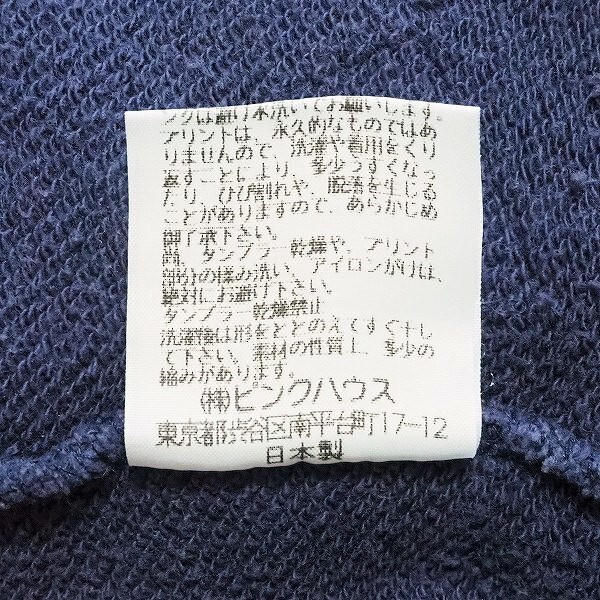 ングは避け水洗いでお願いします。
プリントは、永久的なものではあ
りませんので、洗濯や着用をくり
返すことにより、多少うすくなっ
たり、ひび割れや、脱落を生じる
ことがありますので、あらかじめ
御了承下さい。
尚、タンブラー乾燥や、プリント
部分の揉み洗い、アイロンがけは、
絶対にお避け下さい。
タンブラー乾燥禁止
洗濯後は形をととのえてすぐ干し
て下さい。素材の性質上、多少の
縮みがあります。
㈱ピンクハウス
東京都渋谷区南平台町17-12
日本製